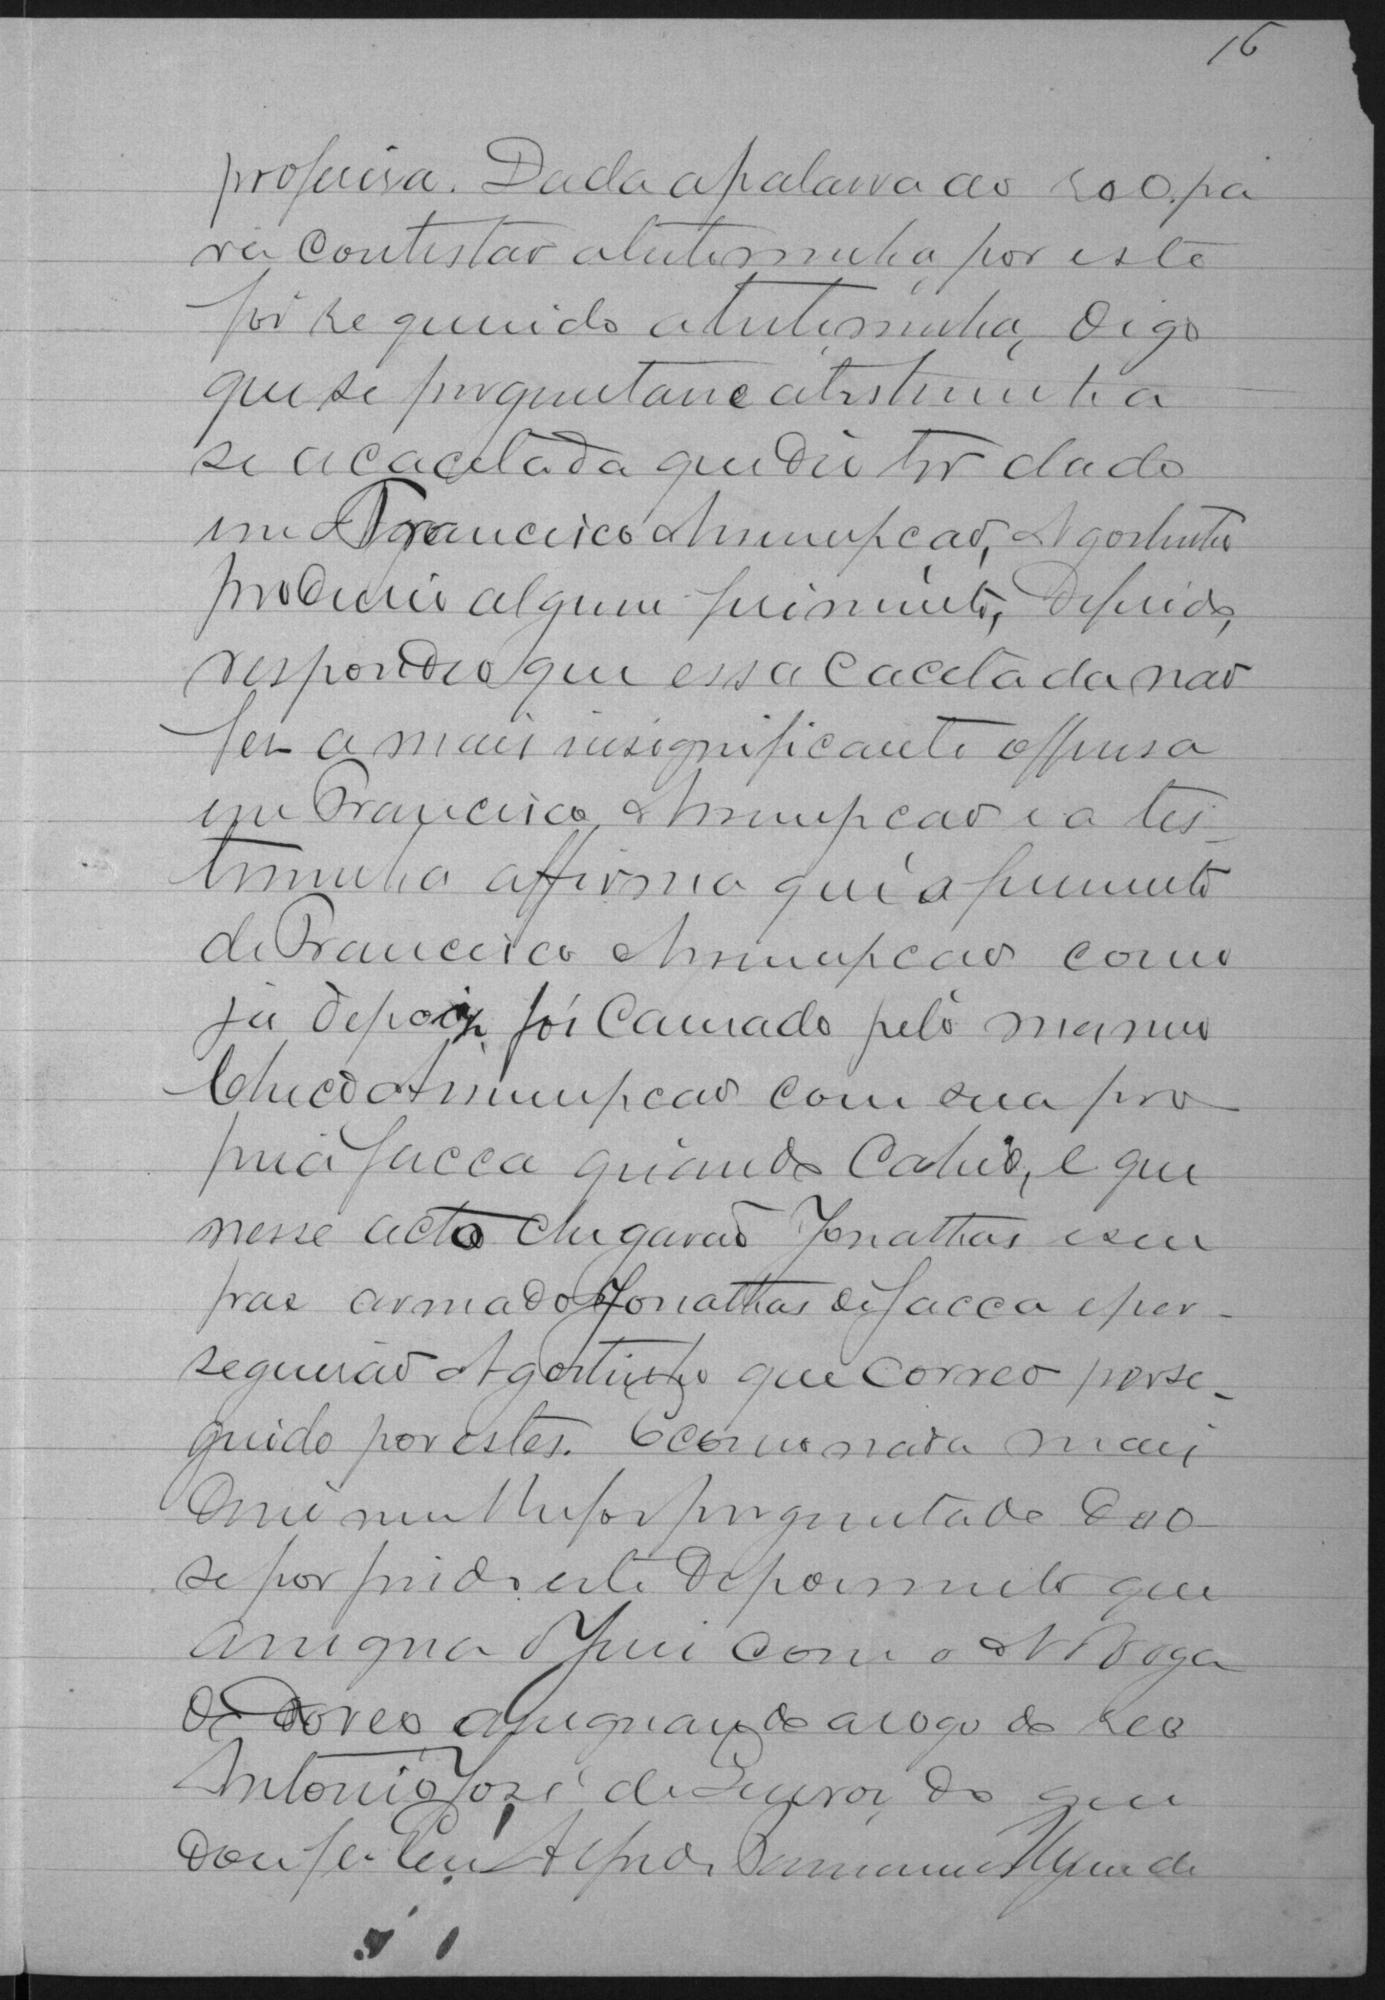 16
Dada a palavra ao reo pa
ra contestar a testemunha por este
foi requerido a testemunha, digo
que se perguntasse a testemunha
se a cacetada que diz ter dado
em Francisco Assumpcaõ, Agostinho
produzio algum ferimento, deferido,
respondeo que essa cacetada naõ
fez a mais insignificante offensa
em Francisco Assumpcaõ e a tes-
temunha affirma que o ferimento
de Francisco Assumpcaõ como
ja depoz foi causado pelo mesmo
Chico Assumpcaõ com sua pro
pria facca quando cahio, e que
nesse acto chegaraõ Jonathas e seu
pae armado Jonathas de facca e per-
seguiraõ Agostinho que correo perse-
guido por estes. E como nada mais
disse nem lhe foi perguntado deo
se por findo este depoimento que
assigna o Juiz com o Advoga
do do reo assignando a rogo do reo
Antonio José de do que
dou fe. Eu